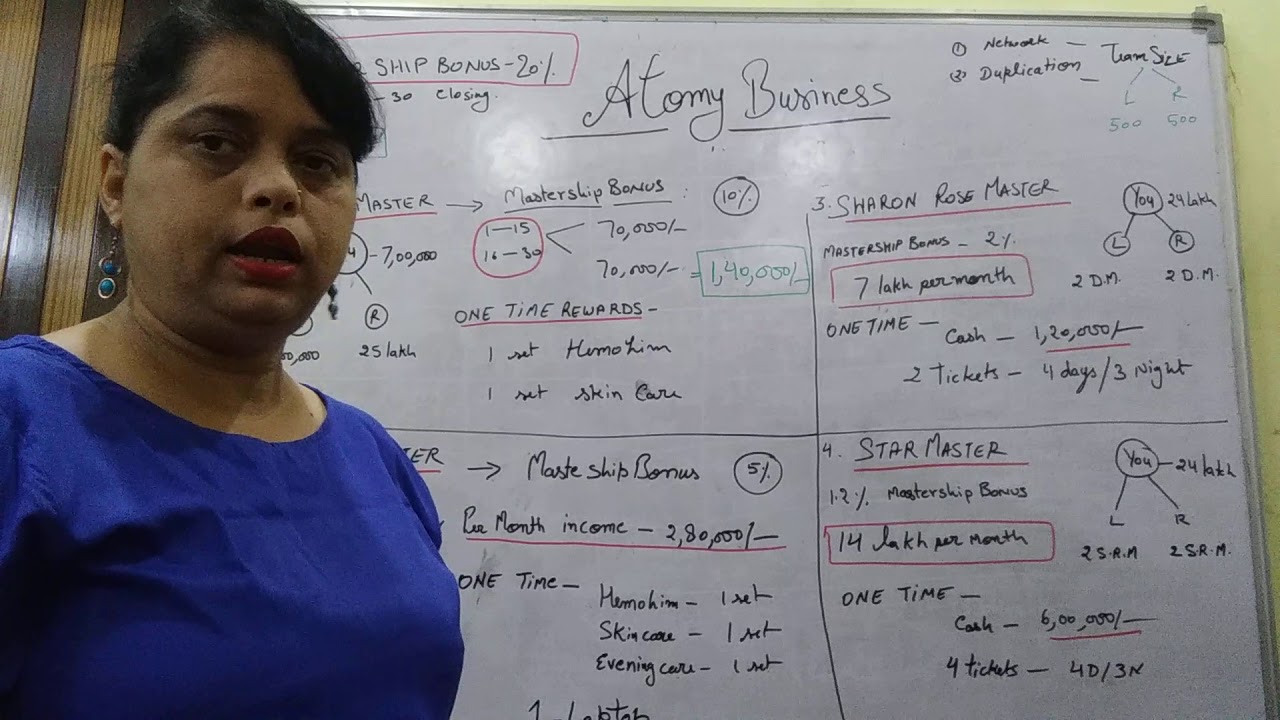 SHIP BONUS-20%.
-30 closing.
Atomy Business
① Network —
② Duplication —
Team Size
L R
500 500
MASTER → Mastership BONUS 10%
1—15 70,000/-
16—30 70,000/- = 1,40,000/-
- 7,00,000
R
25 lakh
ONE TIME REWARDS -
1 set Hemohim
1 set skin Care
3. SHARON ROSE MASTER
MASTERSHIP BONUS - 2%.
7 lakh per month
You 24 lakh
L R
2 D.M. 2 D.M.
ONE TIME — Cash — 1,20,000/-
2 Tickets - 4 days/3 Night
TER → Masteship Bonus 5%
Per Month income - 2,80,000/-
ONE Time — Hemohim - 1 set
Skincare - 1 set
Evening care - 1 set
1 Laptop
4. STAR MASTER
1.2% Mastership Bonus
14 lakh per month
You - 24 lakh
L R
2 S.R.M 2 S.R.M.
ONE TIME —
Cash - 6,00,000/-
4 tickets - 4D/3N